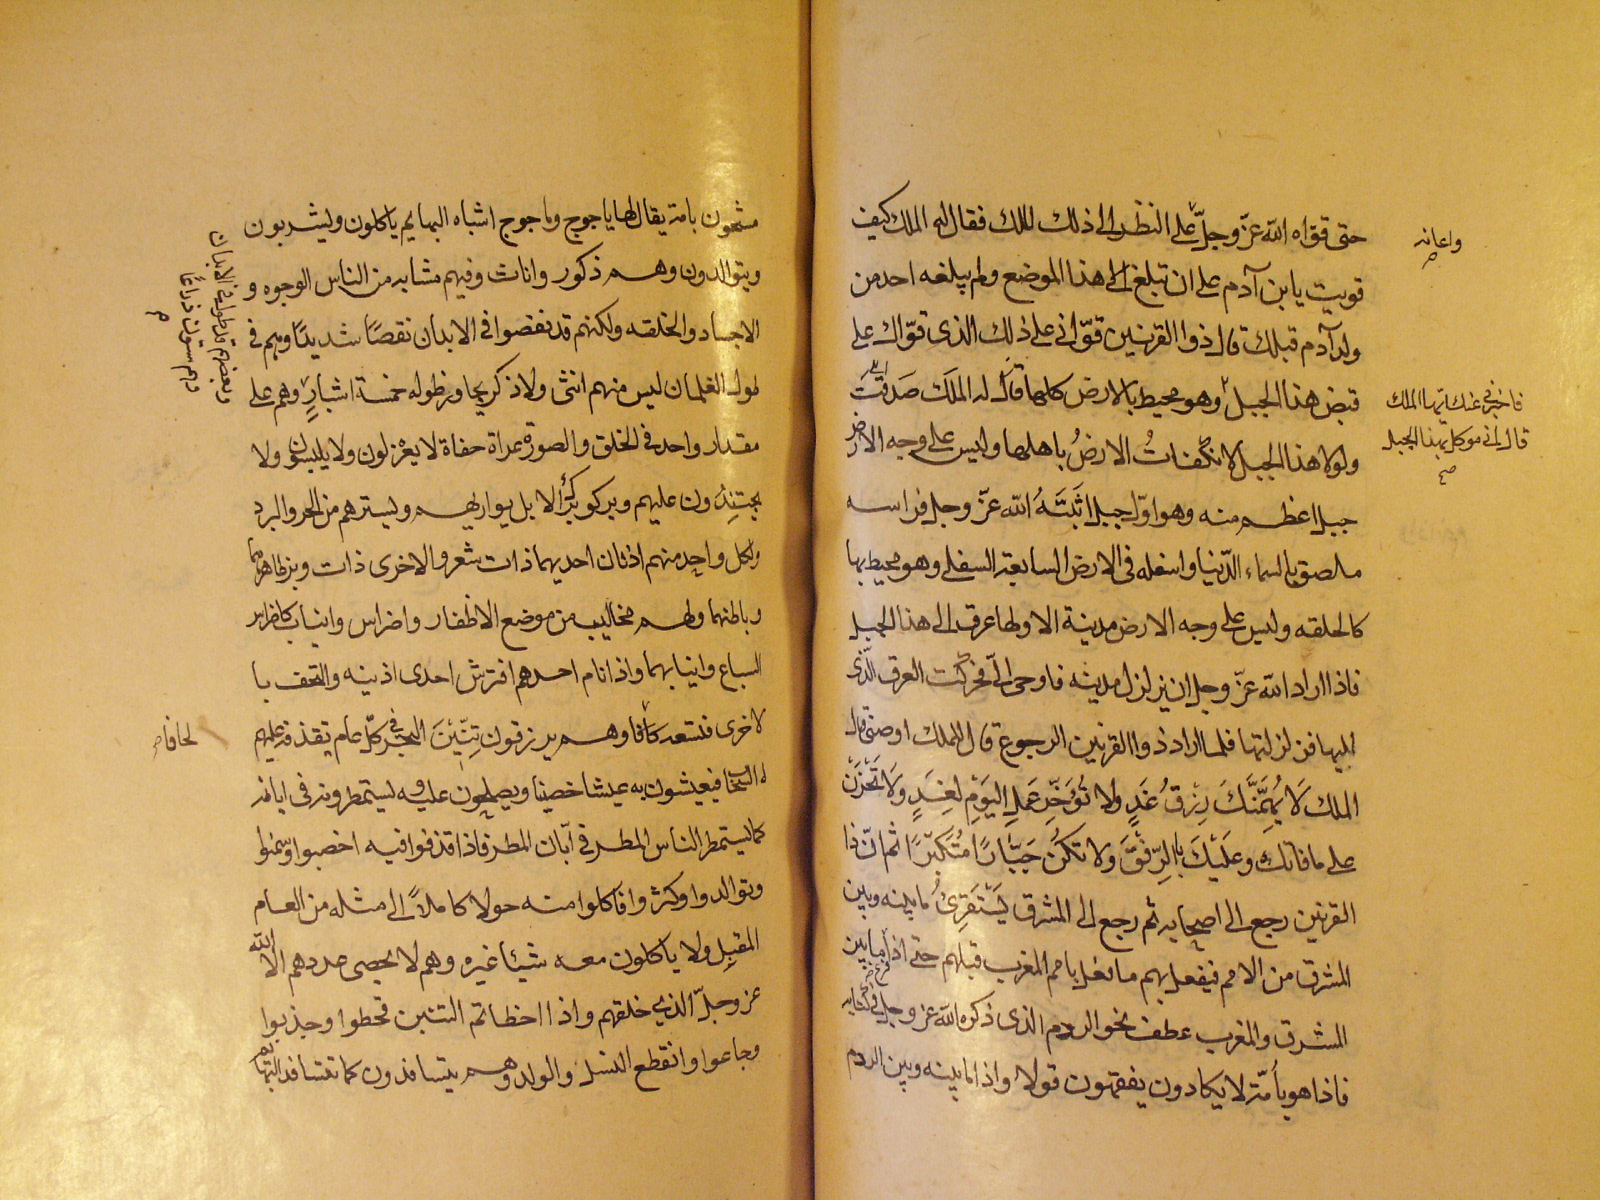 حتى قواه الله عز وجل على النظر الى ذلك الملك فقال له الملك كيف
واعانه
قويت يا بن آدم على ان تبلغ الى هذا الموضع ولم يبلغه احد من
ولد آدم قبلك قال ذوا القرنين قوّاني على ذلك الذى قوّاك على
قبض هذا الجبل وهو محيط بالارض كلها قال له الملك صَدقت
فاخبرني عنك ايها الملك
قال اني موكل بهذا الجبل
صح
ولولا هذا الجبل لانكفاتُ الارضُ باهلها وليس على وجه الارض
جبل اعظم منه وهو اوّل جبل اثبَتَهُ الله عزّ وجل فراسه
ملصق بالسماء الدّنيا واسفله فى الارض السابعة السفلى وهو محيط بها
كالحلقه وليس على وجه الارض مدينة الا ولها عرق الى هذا الجبل
فاذا اراد الله عزّ وجل ان يزلزل مدينه فاوحى الىّ فحركت العرق الّذى
اليها فزلزلتها فلما اراد ذوا القرنين الرجوع قال للملك اوصنى قال
الملك لَا يُهِمَّنَّكَ رِزقُ غَدٍ ولا تُؤَخِّر عَملَ اليَوْمِ لِغَدٍ وَلا تَحْزَنْ
على ما فاتك وعَلَيْكَ بالرِّفْقِ ولا تكُنْ جَبَّارًا مُتَكَبِّرًا ثم انّ ذا
القرنين رجع الى اصحابه ثم رجع الى المشرق يَسْتَقرِئُ ما بينه وبين
المشرق من الامم فيفعل بهم ما فعل بامم المغرب قبلهم حتى اذا ما بين
فرغ
المشرق والمغرب عطف نحو الردم الذى ذكره الله عز وجل فى كتابه
فاذا هو بأمّة لا يكادون يفقهون قولا واذا ما بينه وبين الردم
مشحون بامة يقال لها ياجوج وماجوج اشباه البهايم ياكلون ويشربون
ويتوالدون وهم ذكور واناث وفيهم مشابه من الناس الوجوه و
الاجساد والخلقه ولكنهم قد نقصوا فى الابدان نقصًا شديدًا وهم فى
طول الغلمان ليس منهم انثى ولا ذكر يجاوز طوله خمسة اشبارٍ وهم على
مقدار واحد فى الخلق والصورة عراة حفاة لا يغزلون ولا يلبسون ولا
يحتذون عليهم وبر كوبر الابل يواريهم ويسترهم من الحر والبرد
ولكل واحد منهم اذنان احديهما ذات شعر والاخرى ذات وبر ظاهرهما
وباطنهما ولهم مخاليب من موضع الاظفار واضراس وانياب كاضراس
السباع وانيابهما واذا نام احدهم افترش احدى اذنيه والتحف با
لاخرى فتسعه كافا وهم يرزقون تِنّينَ البحر فى كلّ عام يقذفه عليهم
لحافا
السحاب فيعيشون به عيشا خصبا ويصلحون عليه ويستمطرونه فى ابانه
كما يستمطر الناس المطر فى ابّان المطر فاذا قذفوا فيه اخصبوا وسمنوا
وتوالدوا وكثروا فاكلوا منه حولا كاملاً الى مثله من العام
المقبل ولا ياكلون معه شيئا غيره وهم لا يحصى عددهم الا الله
عز وجلّ الذى خلقهم واذا اخطاتهم التنين قحطوا وجذبوا
وجاعوا وانقطع النسل والولد وهم يتسافدون كما تتسافد البهائم